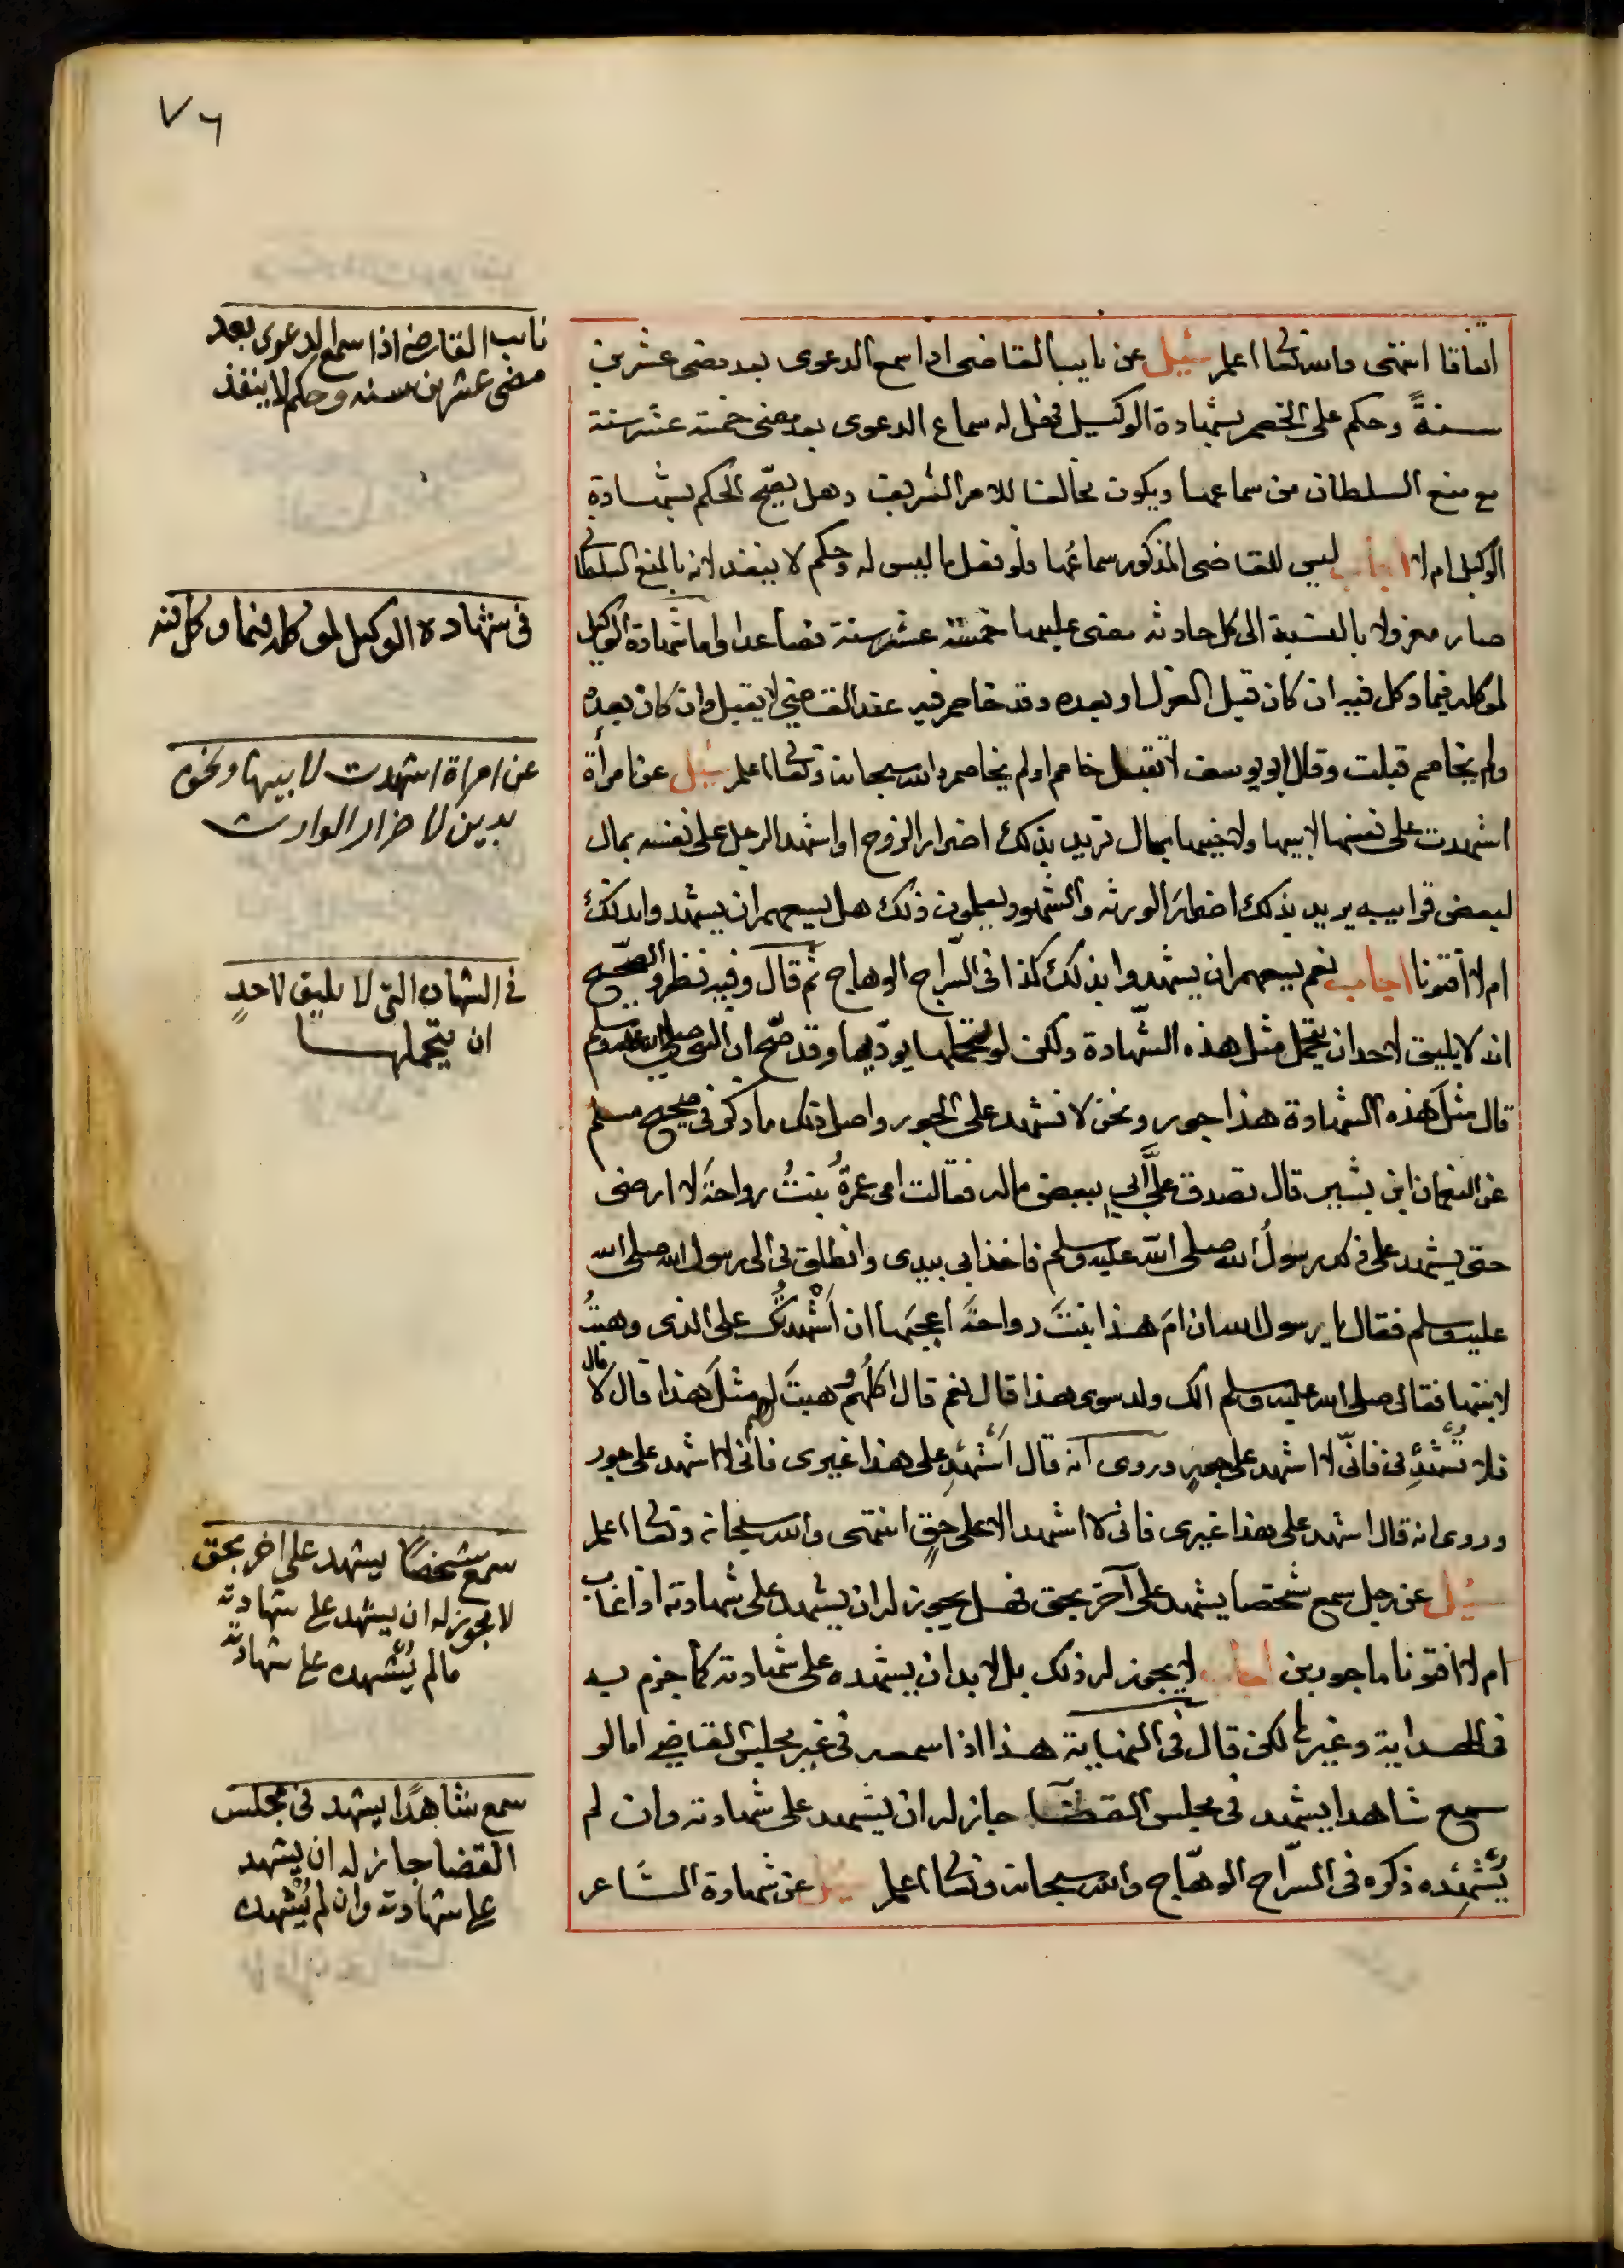 ٧٦
اتفاقا انتهى والله تعالى اعلم سئيل عن نايب القاضى اذا سمع الدعوى بعد مضى عشرين
سنةً وحكم على الخصم بشهادة الوكيل فهل له سماع الدعوى بعد مضى خمسة عشر سنة
مع منع السلطان من سماعها ويكون مخالفا للامر الشريف وهل يصحّ الحكم بشهادة
الوكيل ام لا اجاب ليس للقاضى المذكور سماعُها ولو فعل ما ليس له وحكم لا ينفذ لانه بالمنع السلطانى
صار معزولا بالنسبة الى كل حادثه مضى عليها خمسة عشر سنة فصاعدا واما شهادة الوكيل
لموكله فيما وكل فيه ان كان قبل العزل او بعده وقد خاصم فيه عند القاضي لا يقبل وان كان بعده
ولم يخاصم قبلت وقال ابو يوسف لا تقبل خاصم او لم يخاصم والله سبحانه وتعالى اعلم سئيل عن امرأة
اشهدت على نفسها لابيها ولاخيها بمال تريد بذلك اضرار الزوج او اشهد الرجل على نفسه بمال
لبعض قرابيبه يريد بذلك اضرارَ الورثه والشهود يعلمون ذلك هل يسعهم ان يشهدوا بذلك
ام لا افتونا اجاب نعم يسعهم ان يشهدوا بذلك كذا فى السّراج الوهاج ثم قال وفيه نظر والصحّيح
انه لا يليق لاحد ان يتحمّل مثل هذه الشّهادة ولكن لو تحملها يودّيها وقد صحّ ان النبي صلى الله عليه وسلم
قال مثلَ هذه الشهادة هذا جور ونحن لا نشهد على الجور واصل ذلك ما ذكر فى صحيح مسلم
عن النعمان ابن بشير قال تصدق علىَّ ابي ببعض ماله فقالت امى عمرةُ بنتُ رواحةَ لا ارضى
حتى يشهد على ذلك رسولُ الله صلى الله عليه وسلم فاخذ ابى بيدى وانطلق بى الى رسول الله صلى الله
عليه وسلم فقال يا رسول الله ان امَ هذا بنتَ رواحةَ اعجبَها ان اُشْهدَكَ على الذى وهبتُ
لابنتها فقال صلى الله عليه وسلم الك ولد سوى هذا قال نعم قال اكلَهُم وهبتَ لهم مثلَ هذا قال لا قال
فلا تُشْهِدْنى فانّى لا اشهد على جورٍ وروى انه قال اَشْهِدْ على هذا غيرى فانى لا اشهد على جور
وروى انه قال اشهد على هذا غيرى فانى لا اشهد الا على حقٍ انتهى والله سبحانه وتعالى اعلم
سئيل عن رجل سمع شخصا يشهد على آخر بحق فهل يجوز له ان يشهد على شهادته اذا غاب
ام لا افتونا ماجورين اجاب لا يجوز له ذلك بل لا بد ان يشهده على شهادته كما جزم به
فى الهداية وغيرها لكن قال فى النهاية هذا اذا سمعه فى غير مجلس القاضي اما لو
سمع شاهدا يشهد فى مجلس القضآ جاز له ان يشهد على شهادته وان لم
يُشْهِدْه ذكره فى السّراج الوهّاج والله سبحانه وتعالى اعلم سئيل عن شهادة الشاعر
نايب القاضي اذا سمع الدعوى بعد
مضى عشرين سنه وحكم لا ينفذ
فى شهادة الوكيل لموكله فيما وكل فيه
عن امراة اشهدت لابيها ونحوه
بدين لاضرار الوارث
فى الشهاده التى لا يليق لاحدٍ
ان يتحملها
سمع شخصًا يشهد على اخر بحق
لا يجوز له ان يشهد على شهادته
مالم يُشْهده على شهادته
سمع شاهدًا يشهد فى مجلس
القضا جاز له ان يشهد
على شهادته وان لم يُشْهده